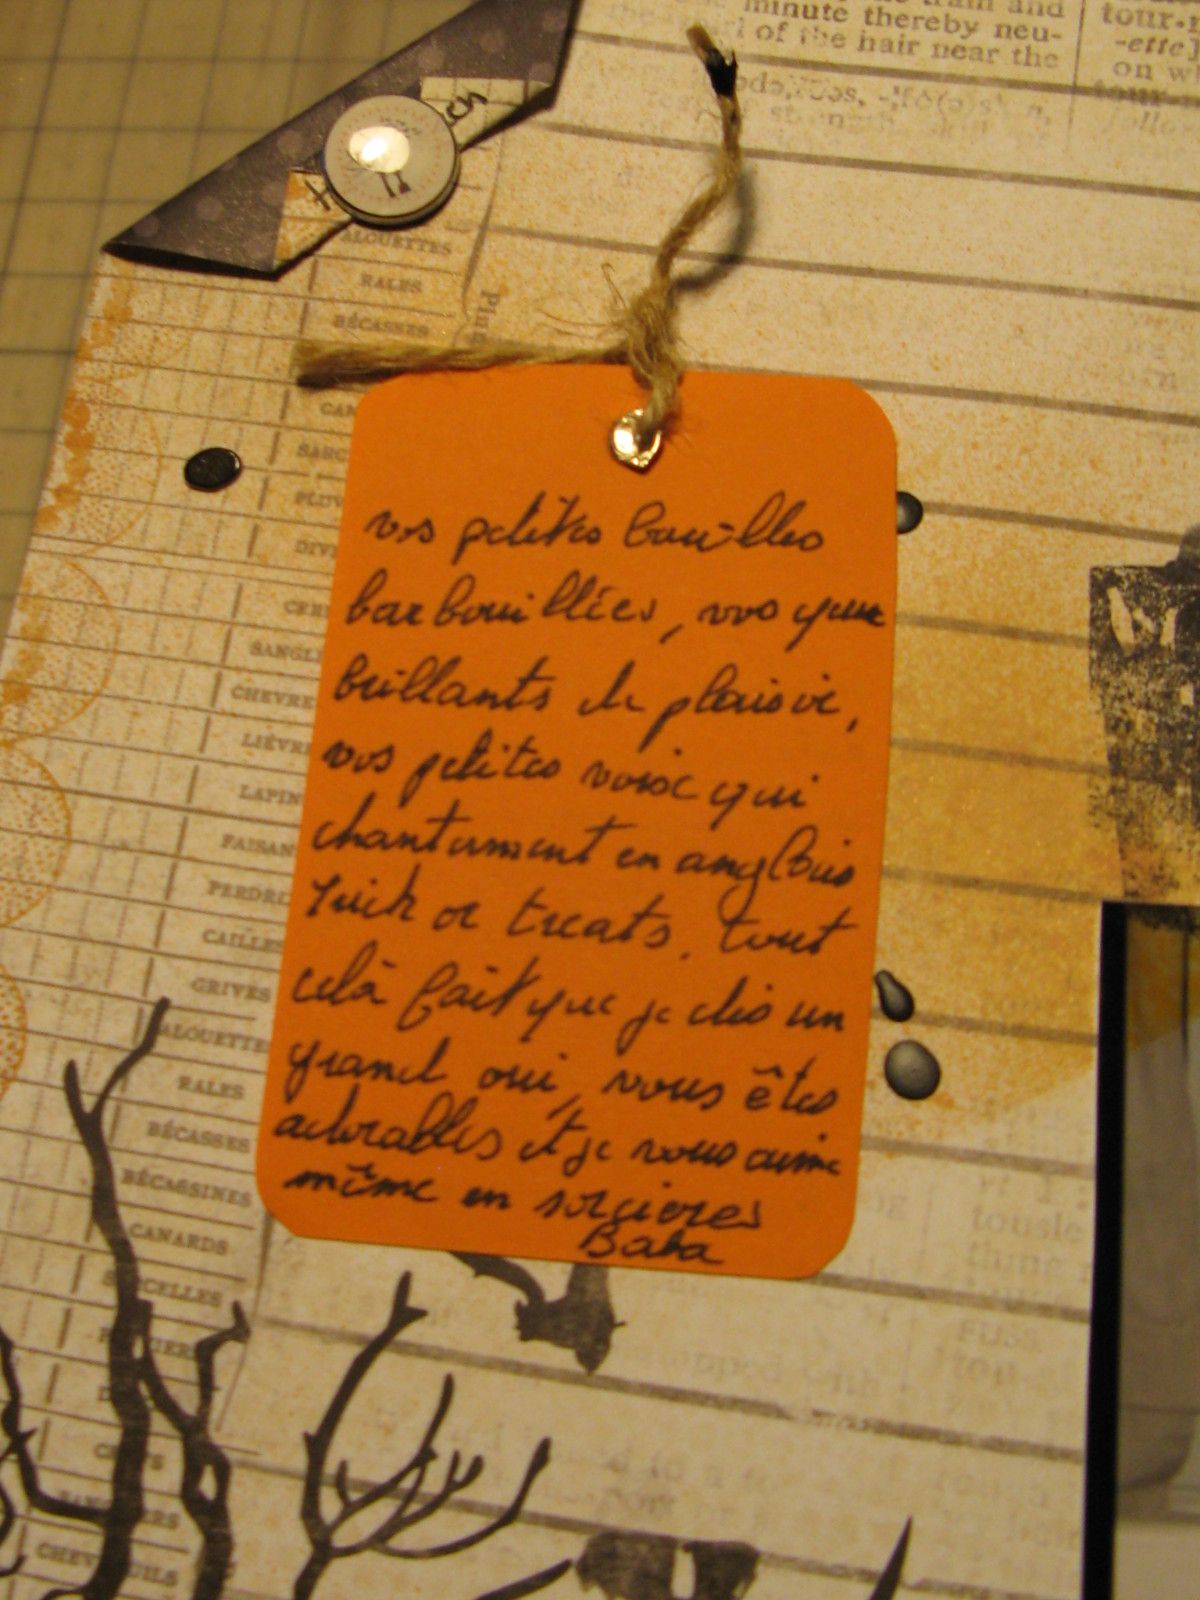 minute thereby neu-
of the hair near the
tour.
-ette]
on w
ALOUETTES
RALES
BÉCASSES
vos petites bouilles
barbouillées, vos yeux
brillants de plaisir,
vos petites voix qui
chantonnent en anglais
Trick or treats. tout
celà fait que je dis un
grand oui, vous êtes
adorables et je vous aime
même en sorcières
Baba
CHEVRE
LIÈVRE
LAPIN
FAISAN
PERDRI
CAILLES
GRIVES
ALOUETTE
RALES
BÉCASSES
BÉCASSINES
CANARDS
SARCELLES
tousle